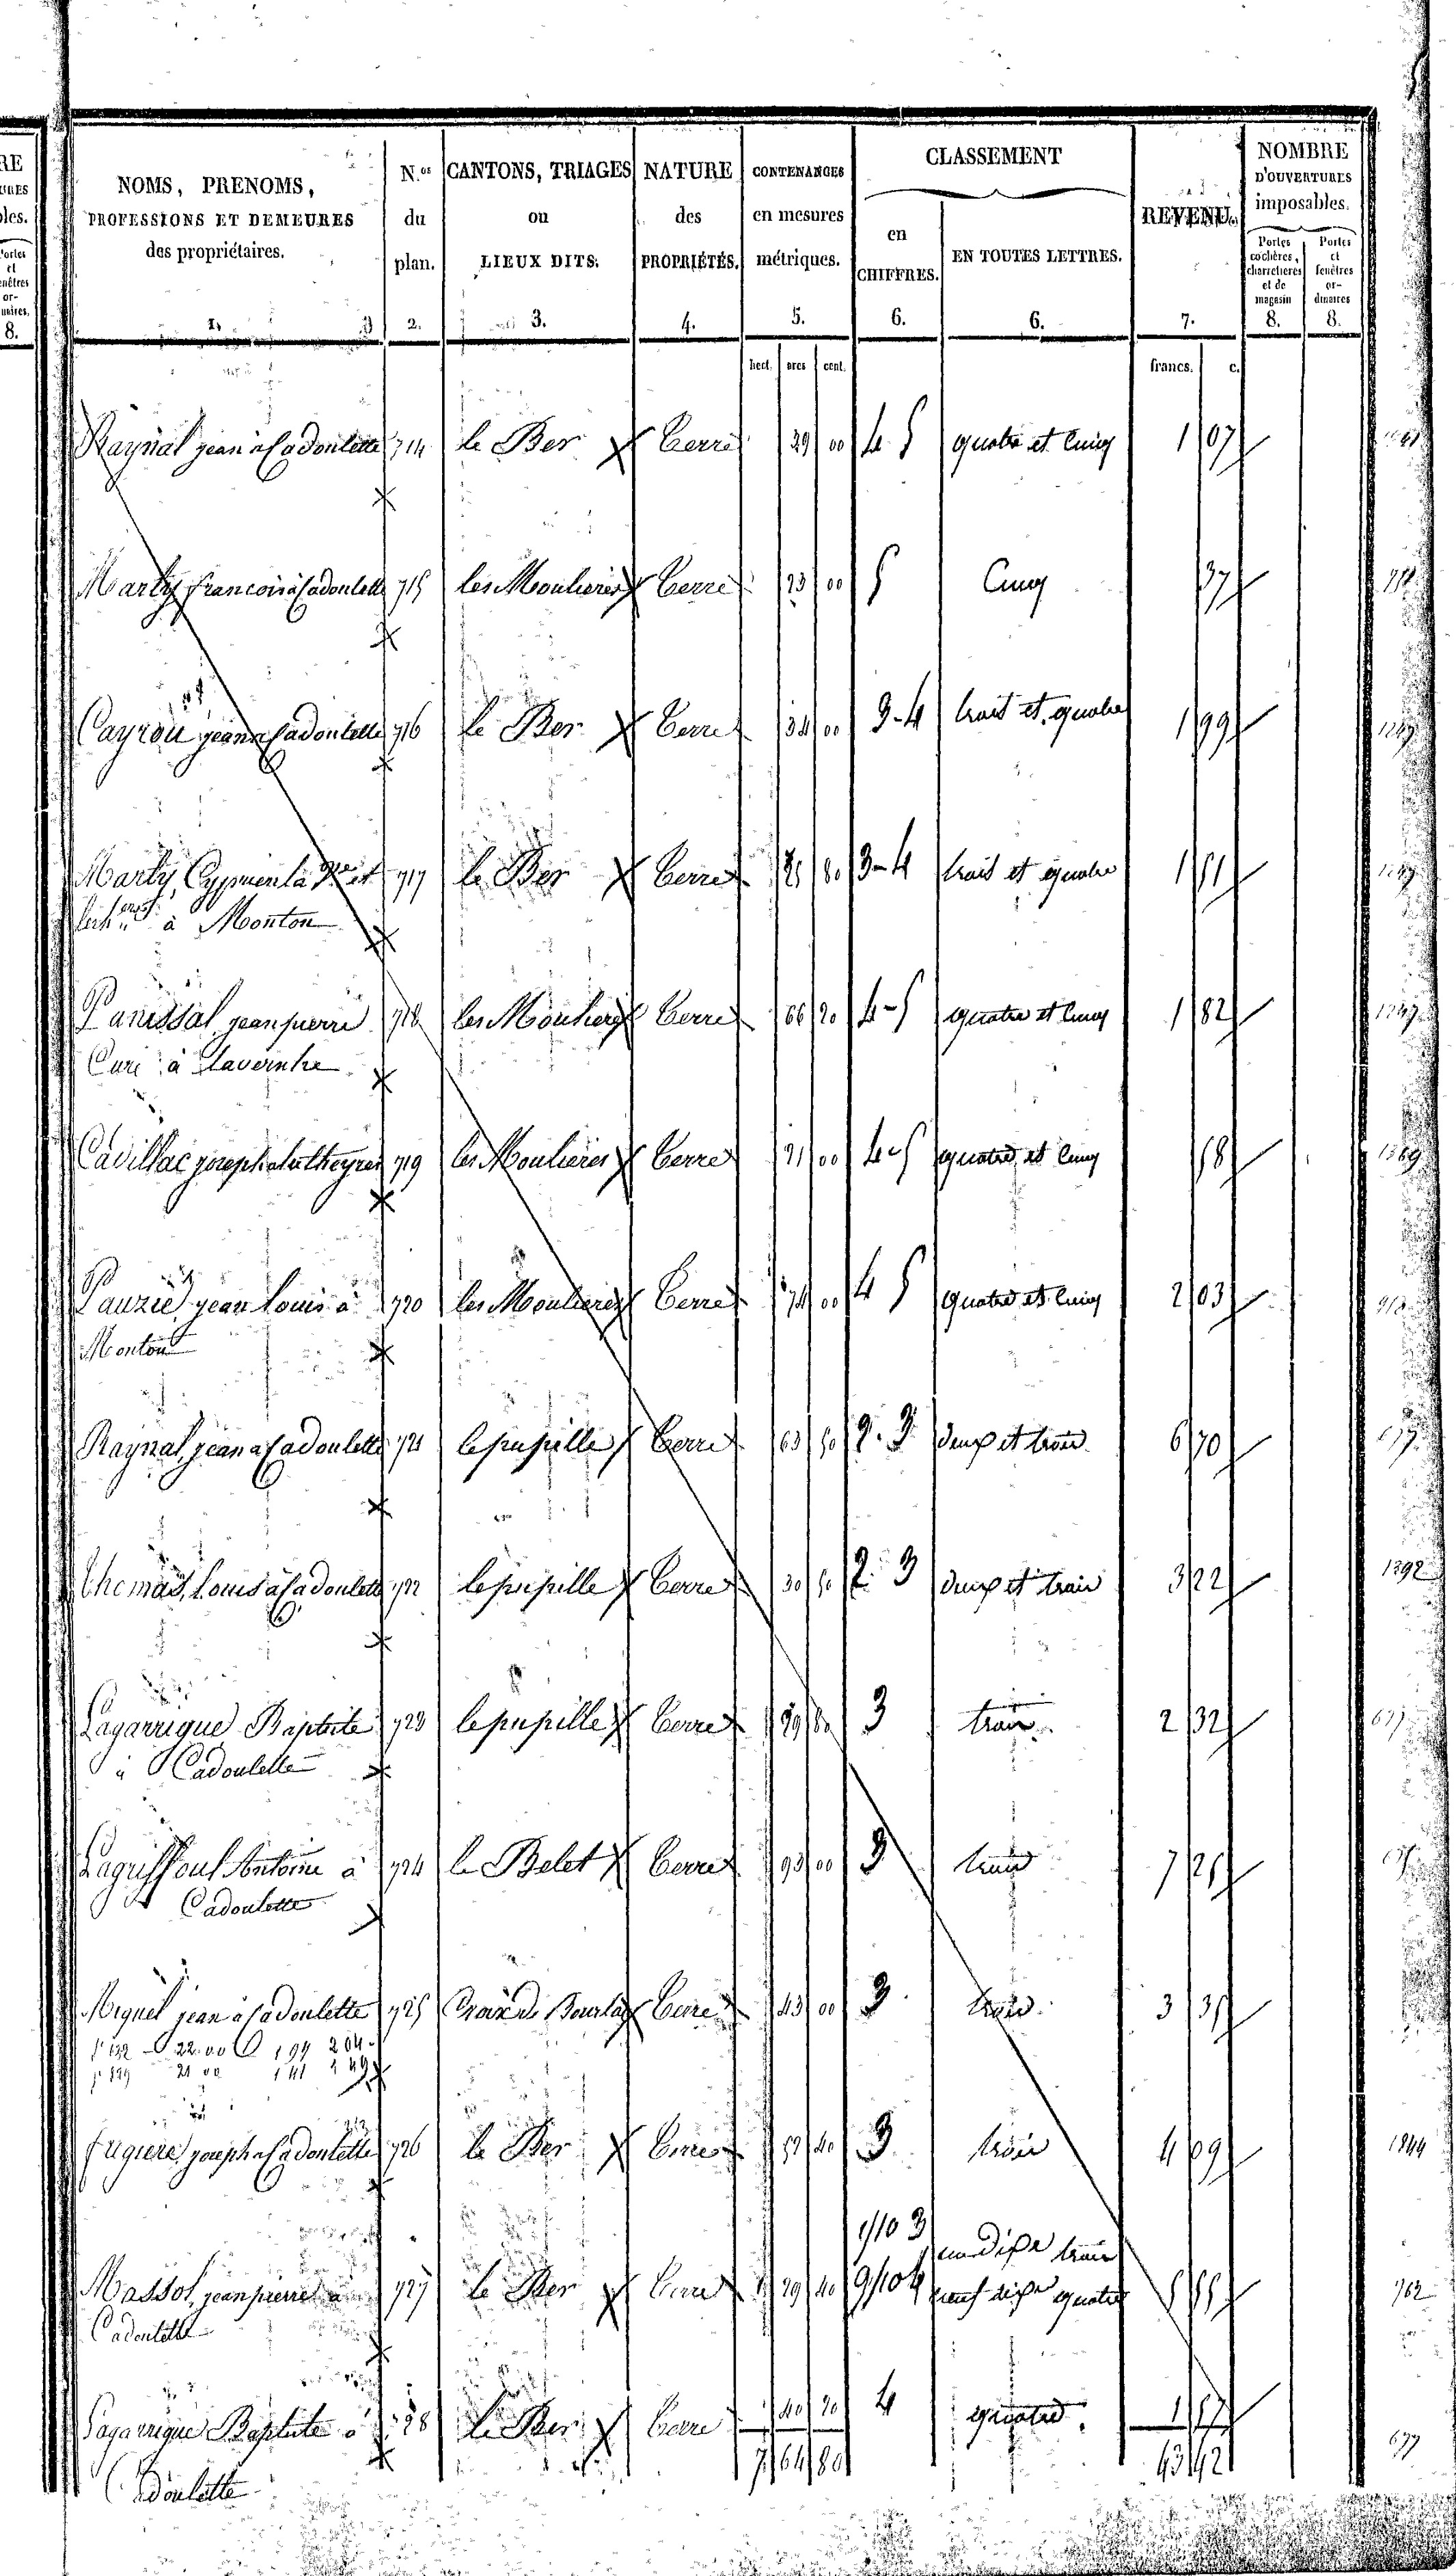 NOMS, PRENOMS, PROFESSIONS ET DEMEURES des propriétaires. 1.
N.os du plan. 2.
CANTONS, TRIAGES ou LIEUX DITS. 3.
NATURE des PROPRIÉTÉS. 4.
CONTENANCES en mesures métriques. 5.
CLASSEMENT
en CHIFFRES. 6.
EN TOUTES LETTRES. 6.
REVENU. 7.
NOMBRE D'OUVERTURES imposables.
Portes cochères, charretieres et de magasin 8.
Portes et fenêtres ordinaires 8.
hect. ares cent. francs. c.
Raynal jean a Cadoulette 714 le Ber Terre 39 00 4 5 quatre et Cinq 1 07
Marty francois a Cadoulette 715 les Moulieres Terre 23 00 5 Cinq 37
Cayrou jean a Cadoulette 716 le Ber Terre 34 00 3-4 trois et quatre 1 99
Marty, 717 le Ber Terre 80 3-4 trois et quatre 1 51
à Monton
Panissal jean pierre 718 les Moulieres Terre 66 20 4-5 quatre et Cinq 1 82
Curé à Lavernhe
Cavillac joseph 719 les Moulieres Terre 21 00 4-5 quatre et Cinq 58
Pauzie jean Louis à 720 les Moulieres Terre 74 00 4 5 quatre et Cinq 2 03
Monton
Raynal, jean a Cadoulette 721 le pupille Terre 63 50 2. 3 deux et trois 6 70
Thomas, Louis a Cadoulette 722 le pupille Terre 30 50 2. 3 deux et trois 3 22 1392
Lagarrigue Baptiste 723 le pupille Terre 29 80 3 trois 2 32 677
à Cadoulette
Antoine à 724 le Belet Terre 93 00 3 trois 7 25
Cadoulette
Miquel jean a Cadoulette 725 Terre 43 00 3 trois 3 35
22.00 199 204
21 00 141 149
fugiere joseph a Cadoulette 726 le Ber Terre 52 40 3 trois 4 09 1344
1/10 3 un dixe trois
Massol, jean pierre à 727 le Ber Terre 1 29 40 9/10 4 neuf dixe quatre 5 55 762
Cadoulette
Lagarrigue Baptiste à 728 le Ber Terre 40 20 4 quatre 1 57 677
Cadoulette
7 64 80 43 42